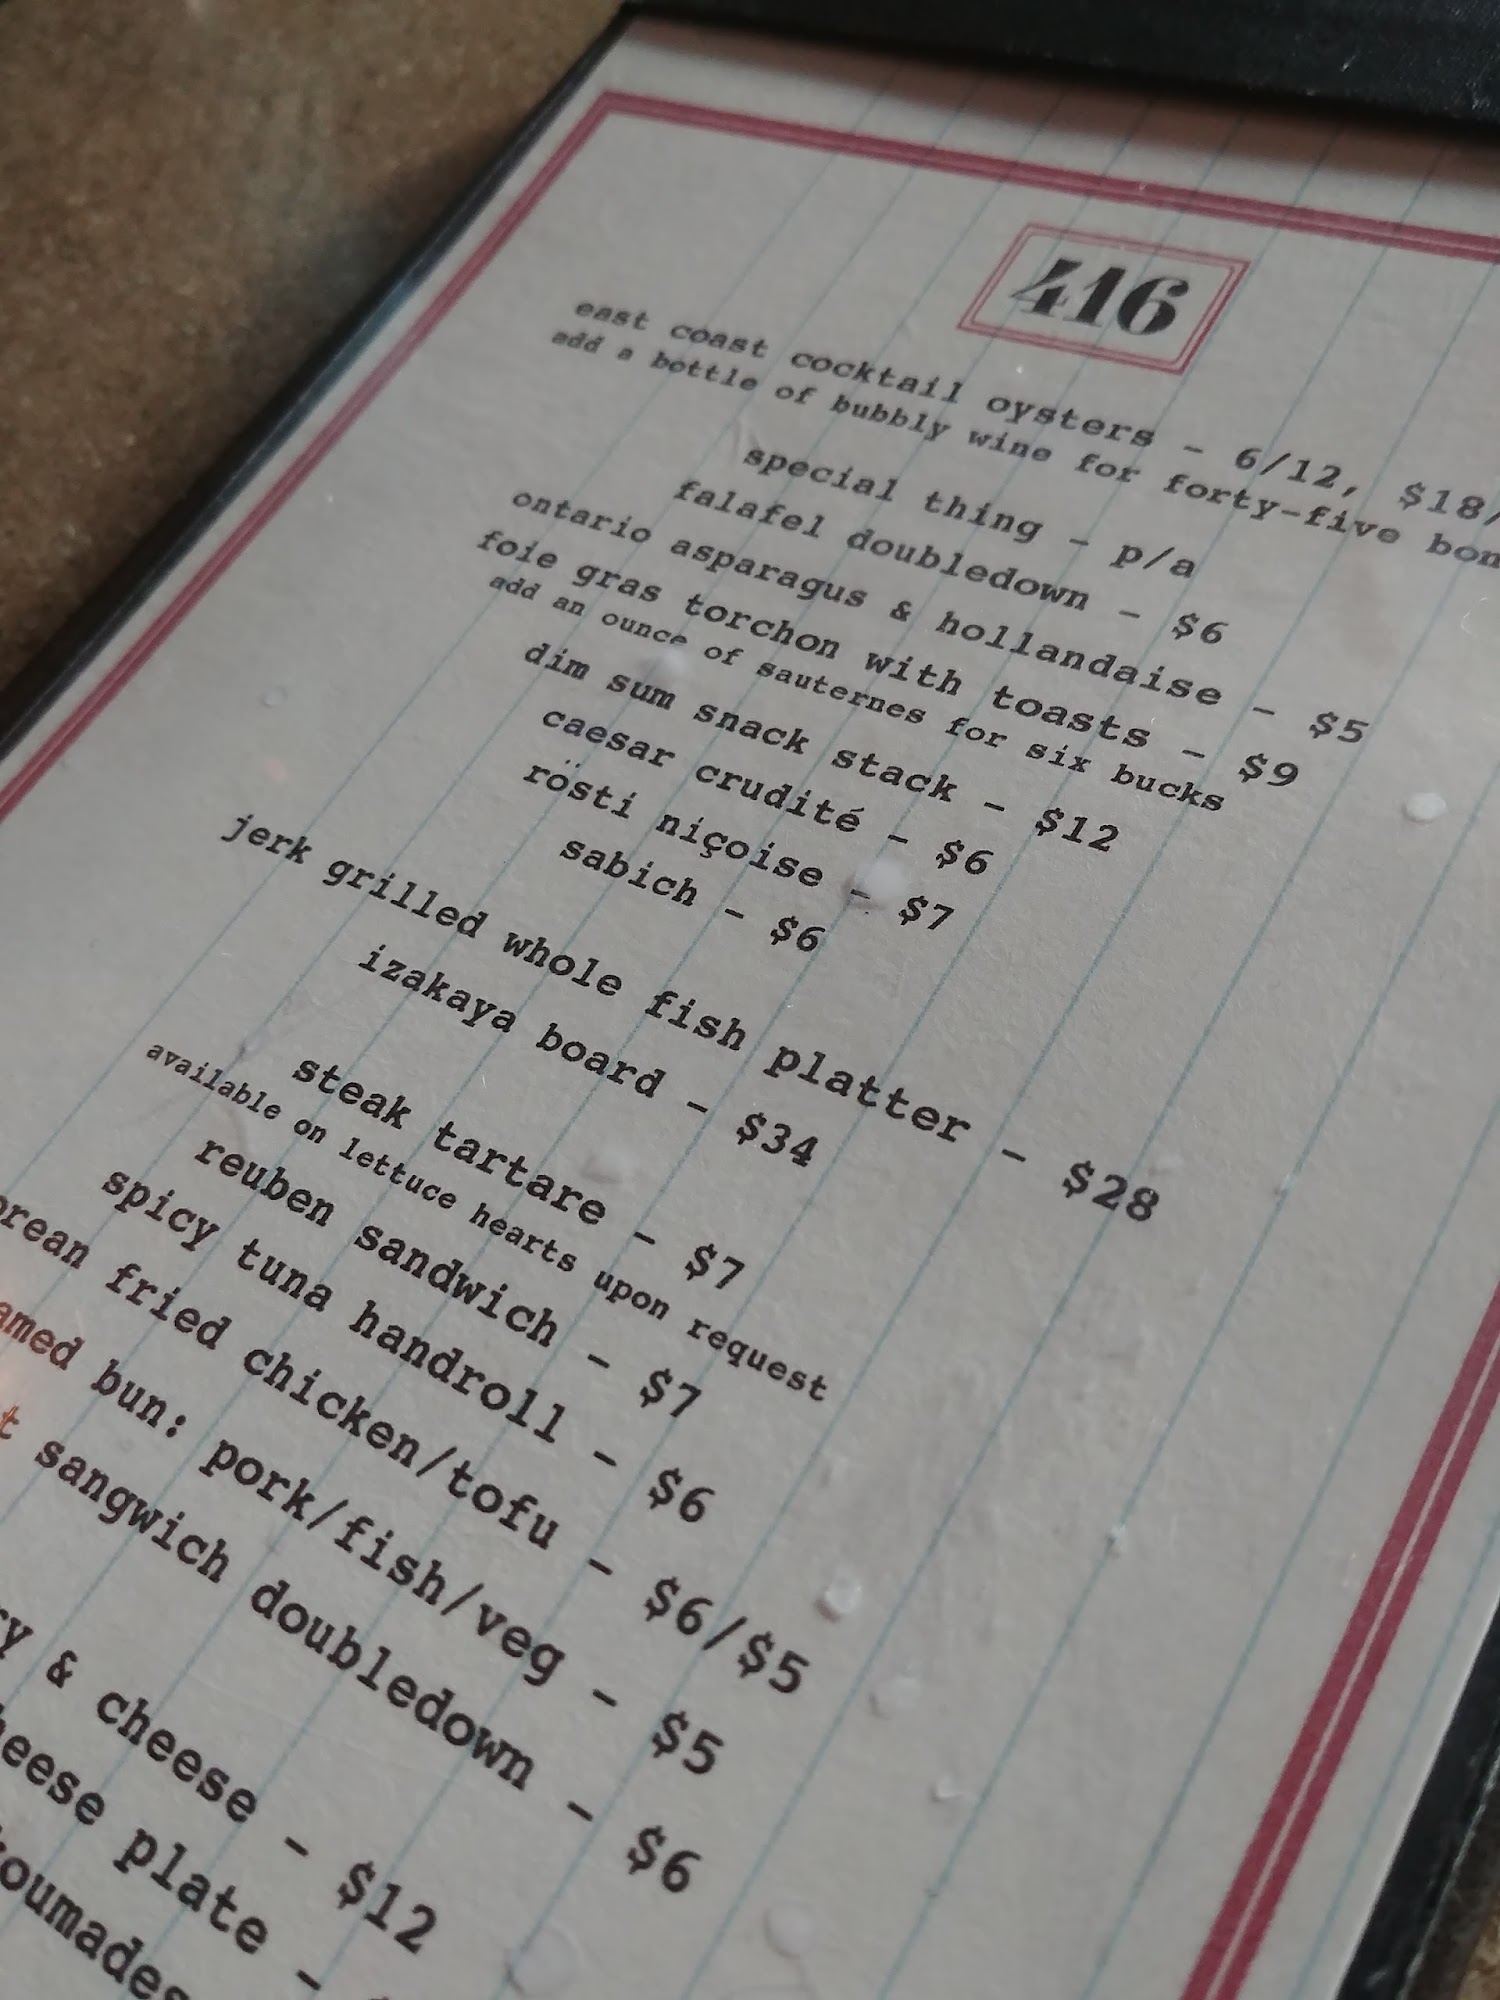 416
east coast cocktail oysters - 6/12, $18/
add a bottle of bubbly wine for forty-five
special thing - p/a
falafel doubledown - $6
ontario asparagus & hollandaise - $5
foie gras torchon with toasts - $9
add an ounce of sauternes for six bucks
dim sum snack stack - $12
caesar crudité - $6
rösti niçoise - $7
sabich - $6
jerk grilled whole fish platter - $28
izakaya board - $34
steak tartare - $7
available on lettuce hearts upon request
reuben sandwich - $7
spicy tuna handroll - $6
fried chicken/tofu - $6/$5
bun: pork/fish/veg - $5
sangwich doubledown - $6
& cheese - $12
plate -